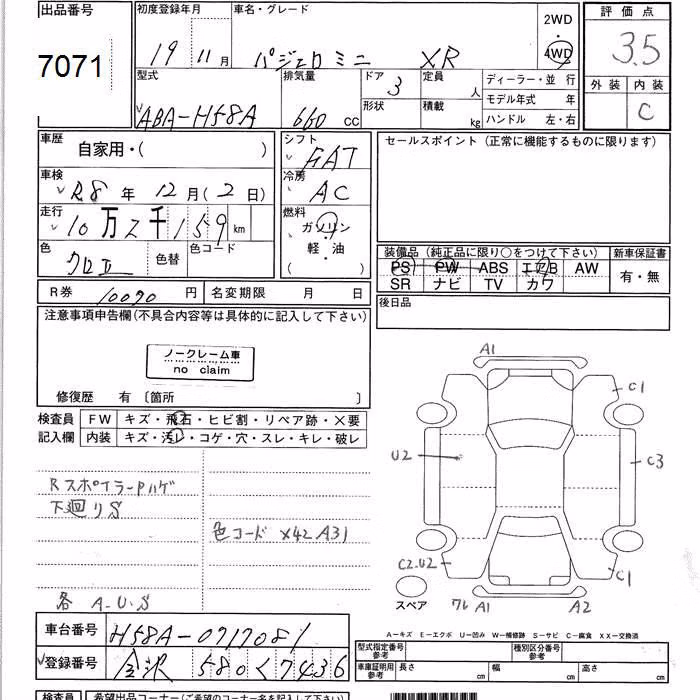 出品番号 初度登録年月 車名・グレード 2WD 評価点
7071 19 11月 パジェロミニ XR 4WD 3.5
型式 排気量 ドア 3 定員 人 ディーラー・並 行 外装 内装
ABA-H58A 660 CC 形状 積載 kg モデル年式 年 C
ハンドル 左・右
車歴 自家用・( ) シフト FAT セールスポイント (正常に機能するものに限ります)
車検 R8 年 12月(2日) 冷房 AC
走行 10万2千159 km 燃料 ガソリン
色 クロII 色替 色コード 軽・油 装備品 (純正品に限り○をつけて下さい) 新車保証書
( ) PS PW ABS エアB AW 有・無
R券 10090 円 名変期限 月 日 SR ナビ TV カワ
注意事項申告欄(不具合内容等は具体的に記入して下さい) 後日品
ノークレーム車
no claim
修復歴 有〔箇所 〕
検査員 FW キズ・飛石・ヒビ割・リペア跡・X要
記入欄 内装 キズ・汚レ・コゲ・穴・スレ・キレ・破レ
A1
C1
U2 C3
RスポイラーPハゲ
下廻りS
色コード X42 A31
C2.U2 C1
各 A.U.S スペア ワレ A1 A2
A-キズ E-エクボ U-凹み W-補修跡 S-サビ C-腐食 XX-交換済
車台番号 H58A-0717081
型式指定番号 参考 種別区分番号 参考
登録番号 金沢 580 く 7436 車庫証明用 参考 長さ cm 幅 cm 高さ cm
検査員 希望出品コーナー(ご希望のコーナー名を記入して下さい)